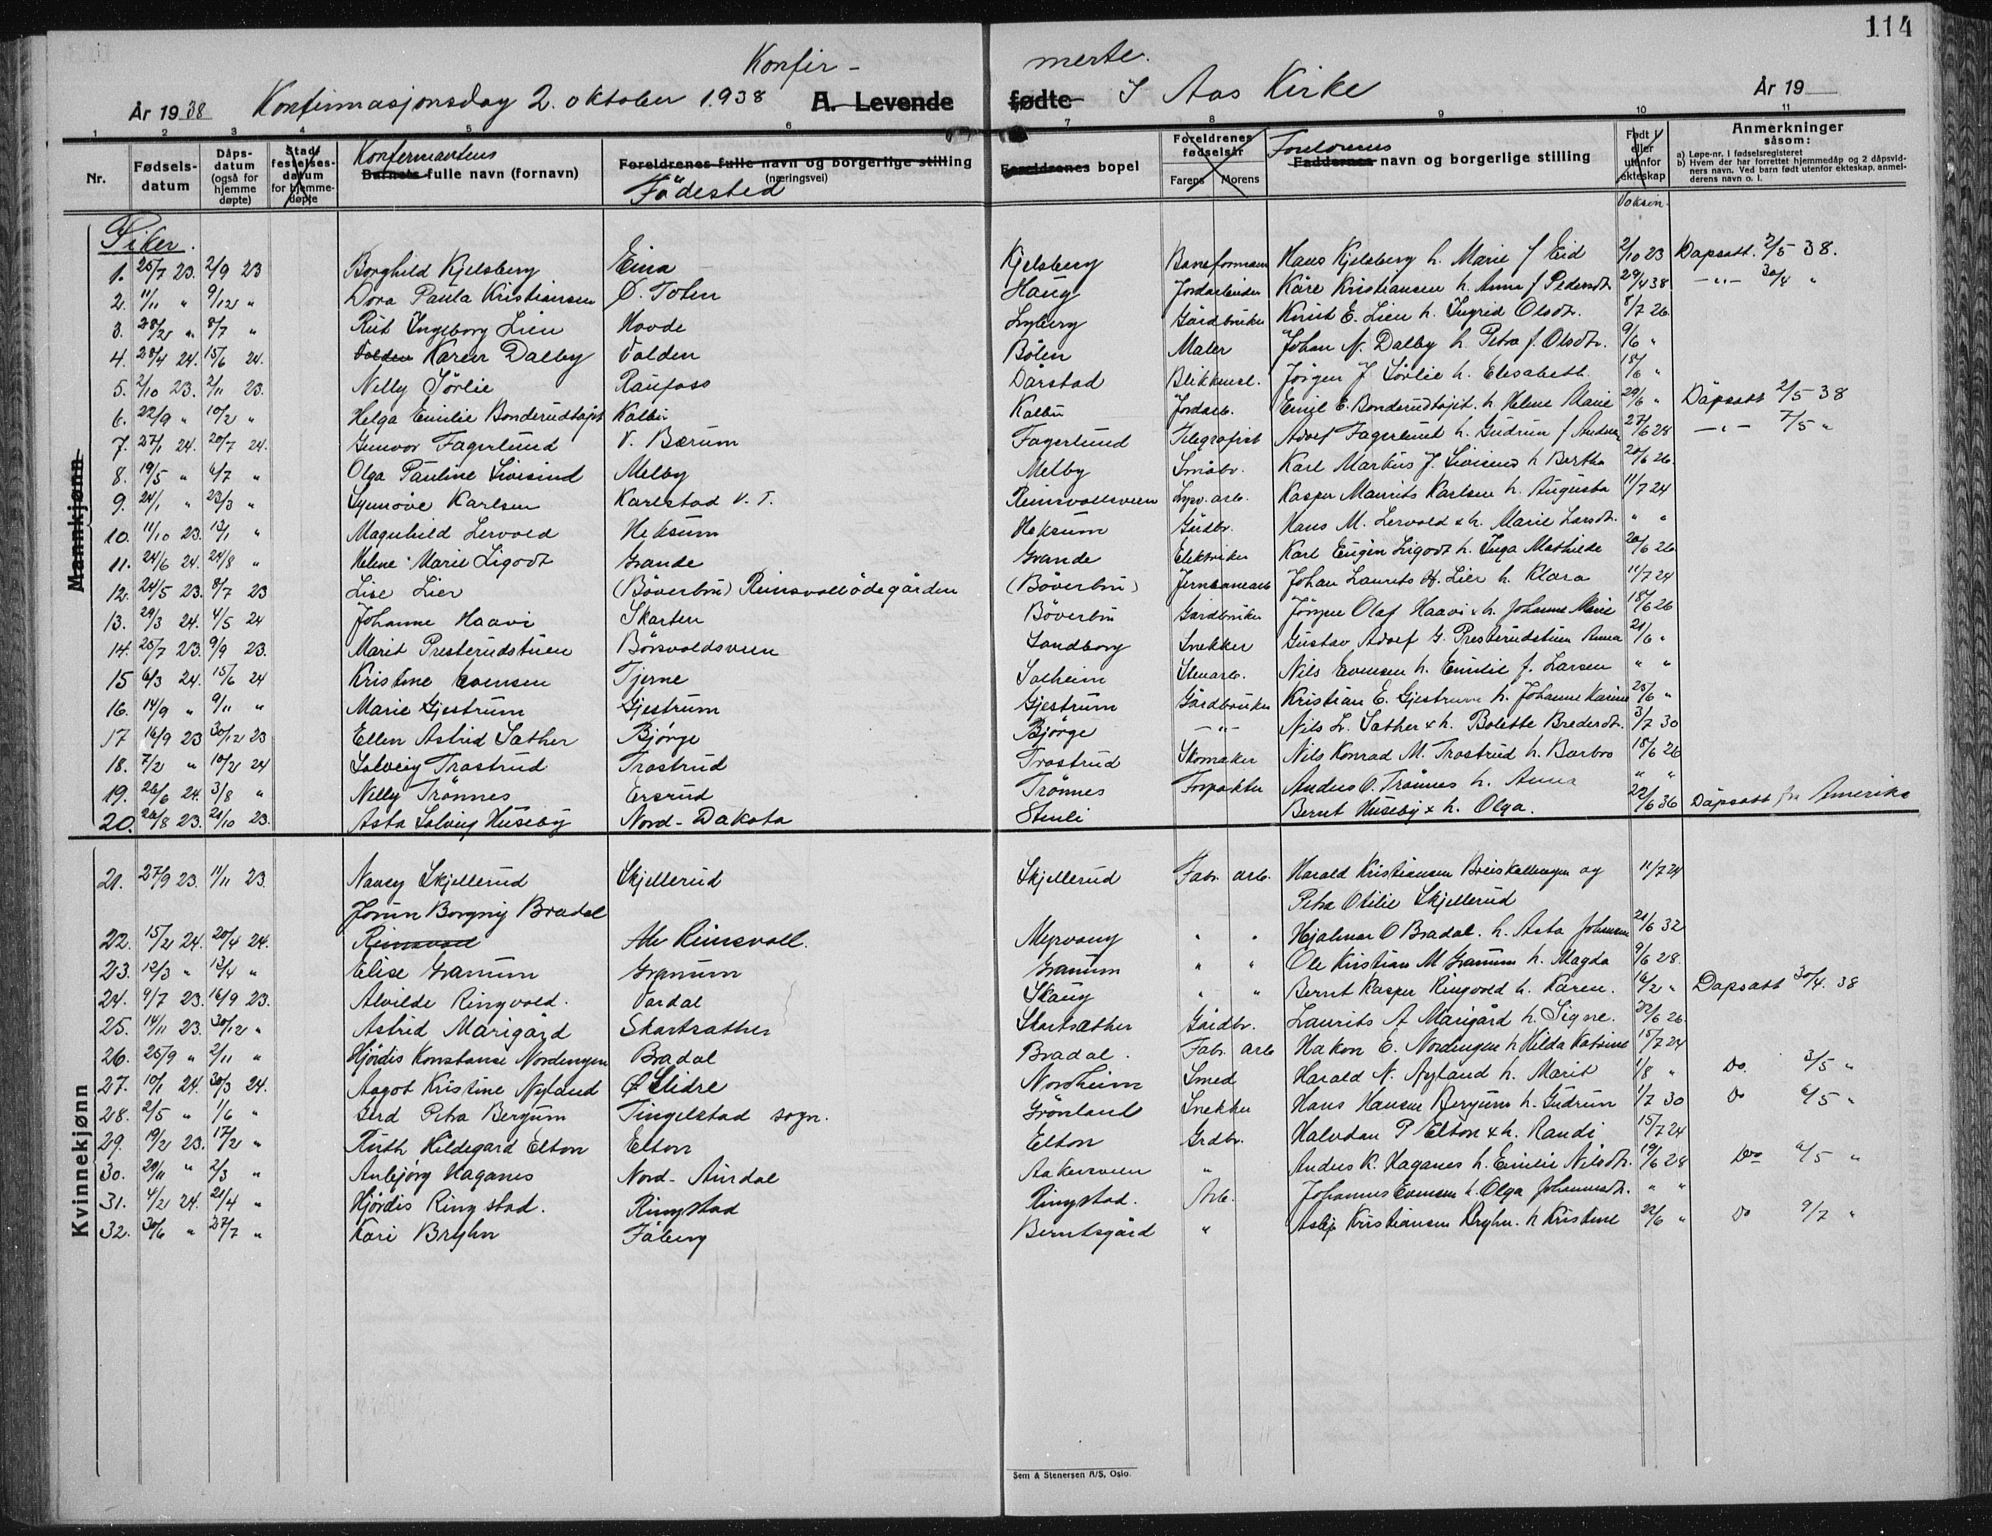 114
Konfir - merte.
År 1938 Konfirmasjonsdag 2. oktober 1938 A. Levende fødte I Aas Kirke År 19
1 2 3 4 5 6 7 8 9 10 11
Nr. Fødselsdatum Dåpsdatum (også for hjemme døpte) Stadfestelsesdatum for hjemmedøpte Konfirmantens Barnets fulle navn (fornavn) Foreldrenes fulle navn og borgerlige stilling (næringsvei) Fødested Foreldrenes bopel Foreldrenes fødselsår Farens Morens Foreldrenes Faddernes navn og borgerlige stilling Født i eller utenfor ekteskap Anmerkninger såsom:
a) Løpe-nr. i fødselsregisteret
b) Hvem der har forrettet hjemmedåp og 2 dåpsvidners navn. Ved barn født utenfor ekteskap, anmelderens navn o. l.
Mannkjønn
Piker.
1. 25/7 23. 2/9 23 Borghild Kjelsberg Eina Kjelsberg Baneformann Hans Kjelsberg h. Marie f Eid 2/10 23 Dåpsatt. 2/5 38.
2. 11/11 " 9/12 " Dora Paula Kristiansen Ø. Toten Haug Jordarbeider Kåre Kristiansen h. Anna f Pedersdt. 29/4 38 -"- 30/4 "
3. 28/2 " 8/7 " Rut Ingeborg Lien Hovde Lyberg Gårdbruker Knut E. Lien h. Ingrid Olsdt. 8/7 26.
4. 28/4 24. 15/6 24. Valden Karen Dalby Valden Bölen Maler Johan N. Dalby h. Petra f. Olsdt. 9/6 "
5. 2/10 23. 2/11 23. Nelly Sørlie Raufoss Dårstad Blikkensl. Jørgen J Sørlie h. Elisabeth. 15/6 "
6. 22/9 " 10/2 " Helga Emilie Bonderudtajet Kalbu Kalbu Jordarb. Emil E. Bonderudtajet. h. Helene Marie 29/6 " Dåpsatt 2/5 38
7. 27/1 24. 20/7 24. Gunvor Fagerlund V. Bærum Fagerlund Telegrafist Adolf Fagerlund h. Gudrun f Anders. 27/6 28 -"- 7/5 "
8. 19/5 " 6/7 " Olga Pauline Sivisind Melby Melby Småbr. Karl Markus J. Sivisind h Bertha 20/6 26.
9. 24/1 " 23/3 " Synnöve Karlsen Karlstad V. T. Reinsvollsveen Lysv. arb. Kasper Maurits Karlsen h. Augusta 11/7 24
10. 11/10 23. 13/1 " Magnhild Lervold Heksum Heksum Gårdbr. Hans M. Lervold & h. Marie Larsdt. " "
11. 24/6 24. 24/8 " Helene Marie Ligodt Grande Grande Elektriker Karl Eugen Ligodt h. Inga Mathilde 20/6 26
12. 24/5 23. 8/7 23 Lise Lier (Böverbru) Reinsvollødegården (Böverbru) Jernbanearb Johan Laurits H. Lier h. Klara 11/7 24
13. 29/3 24. 4/5 24 Johanne Haavi Skarten Böverbru Gardbruker Jörgen Olaf Haavi & h. Johanne Marie 18/6 26
14. 25/7 23. 9/9 23. Marit Presterudstuen Börsvoldsveen Sandborg Snekker Gustav Adolf G. Presterudstuen Anna 21/6 "
15 6/3 24. 15/6 24 Kristine Evensen Tjerne Solheim Stenarb. Nils Evensen h. Emilie f. Larsen " "
16. 14/9 " 9/11 " Marie Gjestrum Gjestrum Gjestrum Gårdbruker Kristian E. Gjestrum h. Johanne Karine 25/6 "
17 16/9 23 30/12 23 Ellen Astrid Sather Bjørge Bjørge -"- Nils L. Sather & h. Bolette Bredesdt. 3/7 30
18. 7/2 " 10/2 24 Solveig Trostrud Trostrud Trostrud Skomaker Nils Konrad M. Trostrud h. Barbro 15/6 26
19. 26/6 24. 3/8 " Nelly Trönnes Ersrud Trönnes Forpakter Anders O. Trönnes h. Anna " "
20. 26/8 23. 21/10 23. Asta Solveig Huseby Nord-Dakota Stenli Bernt Huseby & h. Olga. 22/6 36 Dåpsatt fra Amerika
Kvinnekjønn
21. 27/9 23. 11/11 23. Nancy Skjellerud Skjellerud Skjellerud Fabr. arb. Harald Kristiansen Breiskallvegen og 11/7 24
Petra Otilie Skjellerud
Jorun Borgny Bradal
22. 15/2 24. 20/4 24. Reinsvoll Reinsvoll. Myrvang " " Hjalmar O Bradal. h. Asta Johansen 21/6 32
23. 12/3 " 13/4 " Elise Granum Granum Granum " " Ole Kristian M Granum h. Magda 9/6 28.
24. 9/7 23. 16/9 23. Alvilde Ringvold. Vardal Skaug " " Bernt Kasper Ringvold h. Karen. 16/2 " Dåpsatt 30/4. 38
25. 14/11 23. 30/12 " Astrid Marigård Skartsæther Skartsæther Gårdbr. Laurits A Marigård h. Signe. 22/6 26.
26. 25/9 " 2/11 " Hjördis Konstanse Nordengen Bradal Bradal. Fabr. arb Hakon E. Nordengen h Hilda Katrine 15/7 24
27. 10/1 24. 30/3 24. Aagot Kristine Nyland Ø Slidre Nordheim Smed Harald N. Nyland h. Marit 1/8 " Do. 3/5 "
28. 2/5 " 1/6 " Gerd Petra Bergum Tingelstad sogn. Grönland Snekker Hans Hansen Bergum h. Gudrun 1/7 30 Do 6/5 "
29. 19/2 23. 17/2 " Ruth Hildegard Elton Elton Elton Grdbr. Halvdan P Elton & h. Randi 15/7 24
30. 20/11 " 2/3 " Anbjörg Haganes Nord-Aurdal Aakerveen " Anders K. Haganes h. Emilie Nilsdt. 19/6 28 Do 6/5 "
31. 4/2 24. 21/4 " Hjördis Ringstad. Ringstad Ringstad. Arb. Johannes Evensen h. Olga Johannesdt. " "
32. 30/6 " 27/7 " Kari Bryhn Fåberg Berntsgård " Asbj Kristiansen Bryhn. h Kristine 22/6 " Do 9/7 "
Sem & Stenersen A/S, Oslo.